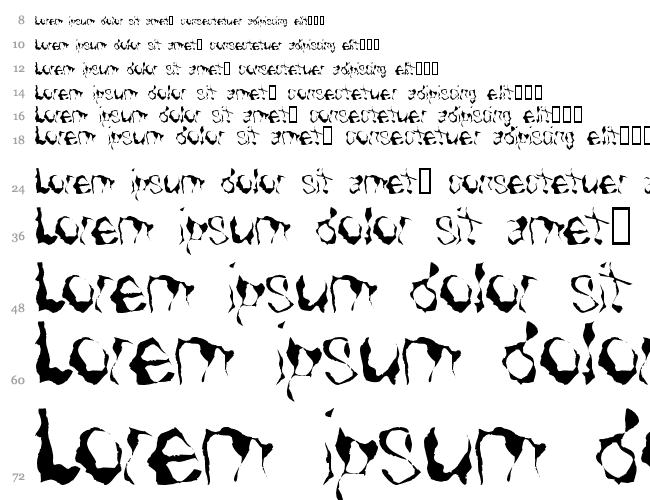 8 Lorem ipsum dolor sit amet▯ consectetuer adipiscing elit▯▯▯
10 Lorem ipsum dolor sit amet▯ consectetuer adipiscing elit▯▯▯
12 Lorem ipsum dolor sit amet▯ consectetuer adipiscing elit▯▯▯
14 Lorem ipsum dolor sit amet▯ consectetuer adipiscing elit▯▯▯
16 Lorem ipsum dolor sit amet▯ consectetuer adipiscing elit▯▯▯
18 Lorem ipsum dolor sit amet▯ consectetuer adipiscing elit▯▯▯
24 Lorem ipsum dolor sit amet▯ consectetuer a
36 Lorem ipsum dolor sit amet▯
48 Lorem ipsum dolor sit
60 Lorem ipsum dolor
72 Lorem ipsum do